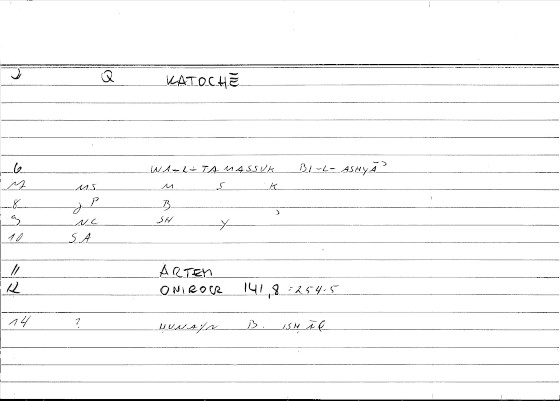 Q KATOCHĒ
6 WA-L-TAMASSUK BI-L-ASHYĀʾ
MS M S K
8 P B
9 NC SH Y ʾ
10 SA
11 ARTEM
12 ONIROCR 141,8 = 254.5
14 ? ḤUNAYN B. ISḤĀQ